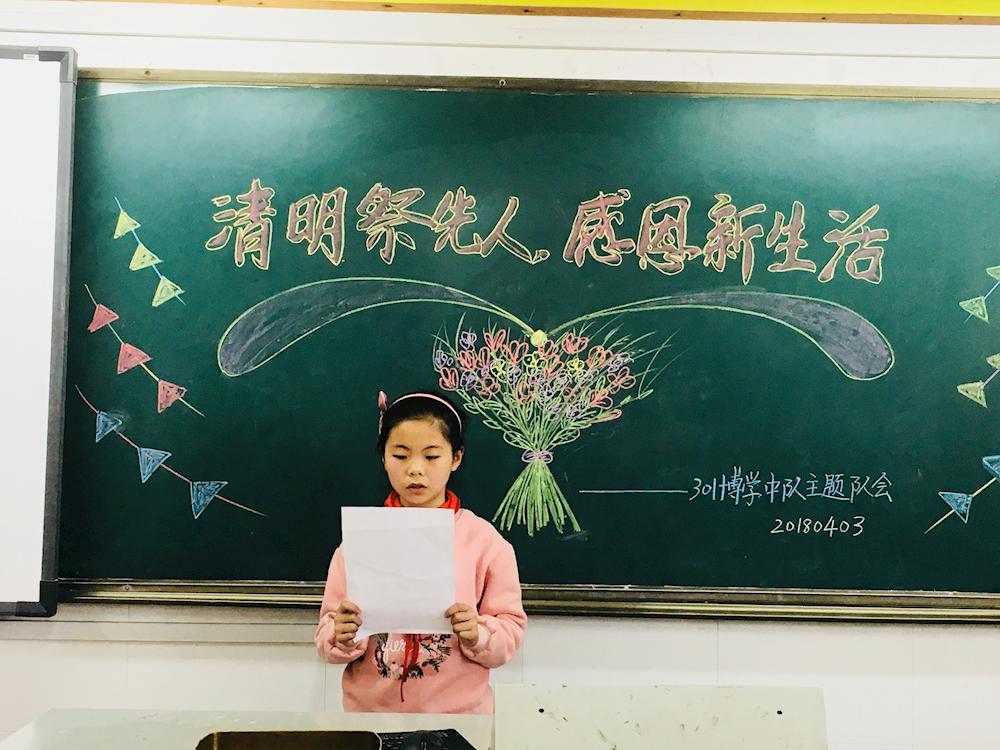 清明祭先人、感恩新生活
——301博学中队主题队会
20180403